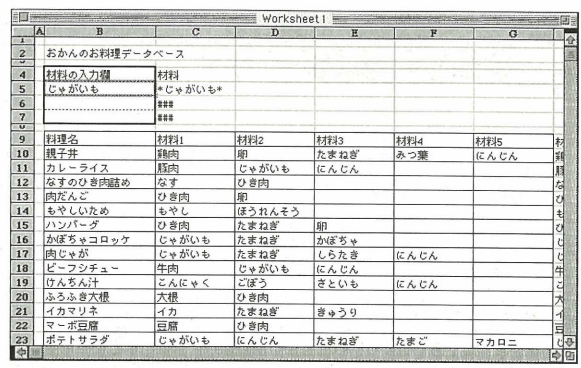 Worksheet1
A B C D E F G
1
2 おかんのお料理データベース
4 材料の入力欄 材料
5 じゃがいも *じゃがいも*
6 ###
7 ###
9 料理名 材料1 材料2 材料3 材料4 材料5 材
10 親子丼 鶏肉 卵 たまねぎ みつ葉 にんじん 鶏
11 カレーライス 豚肉 じゃがいも にんじん 豚
12 なすのひき肉詰め なす ひき肉 な
13 肉だんご ひき肉 卵 ひ
14 もやしいため もやし ほうれんそう も
15 ハンバーグ ひき肉 たまねぎ 卵 ひ
16 かぼちゃコロッケ じゃがいも たまねぎ かぼちゃ じ
17 肉じゃが じゃがいも たまねぎ しらたき にんじん じ
18 ビーフシチュー 牛肉 じゃがいも にんじん 牛
19 けんちん汁 こんにゃく ごぼう さといも にんじん こ
20 ふろふき大根 大根 ひき肉 大
21 イカマリネ イカ たまねぎ きゅうり イ
22 マーボ豆腐 豆腐 ひき肉 豆
23 ポテトサラダ じゃがいも にんじん たまねぎ たまご マカロニ じ